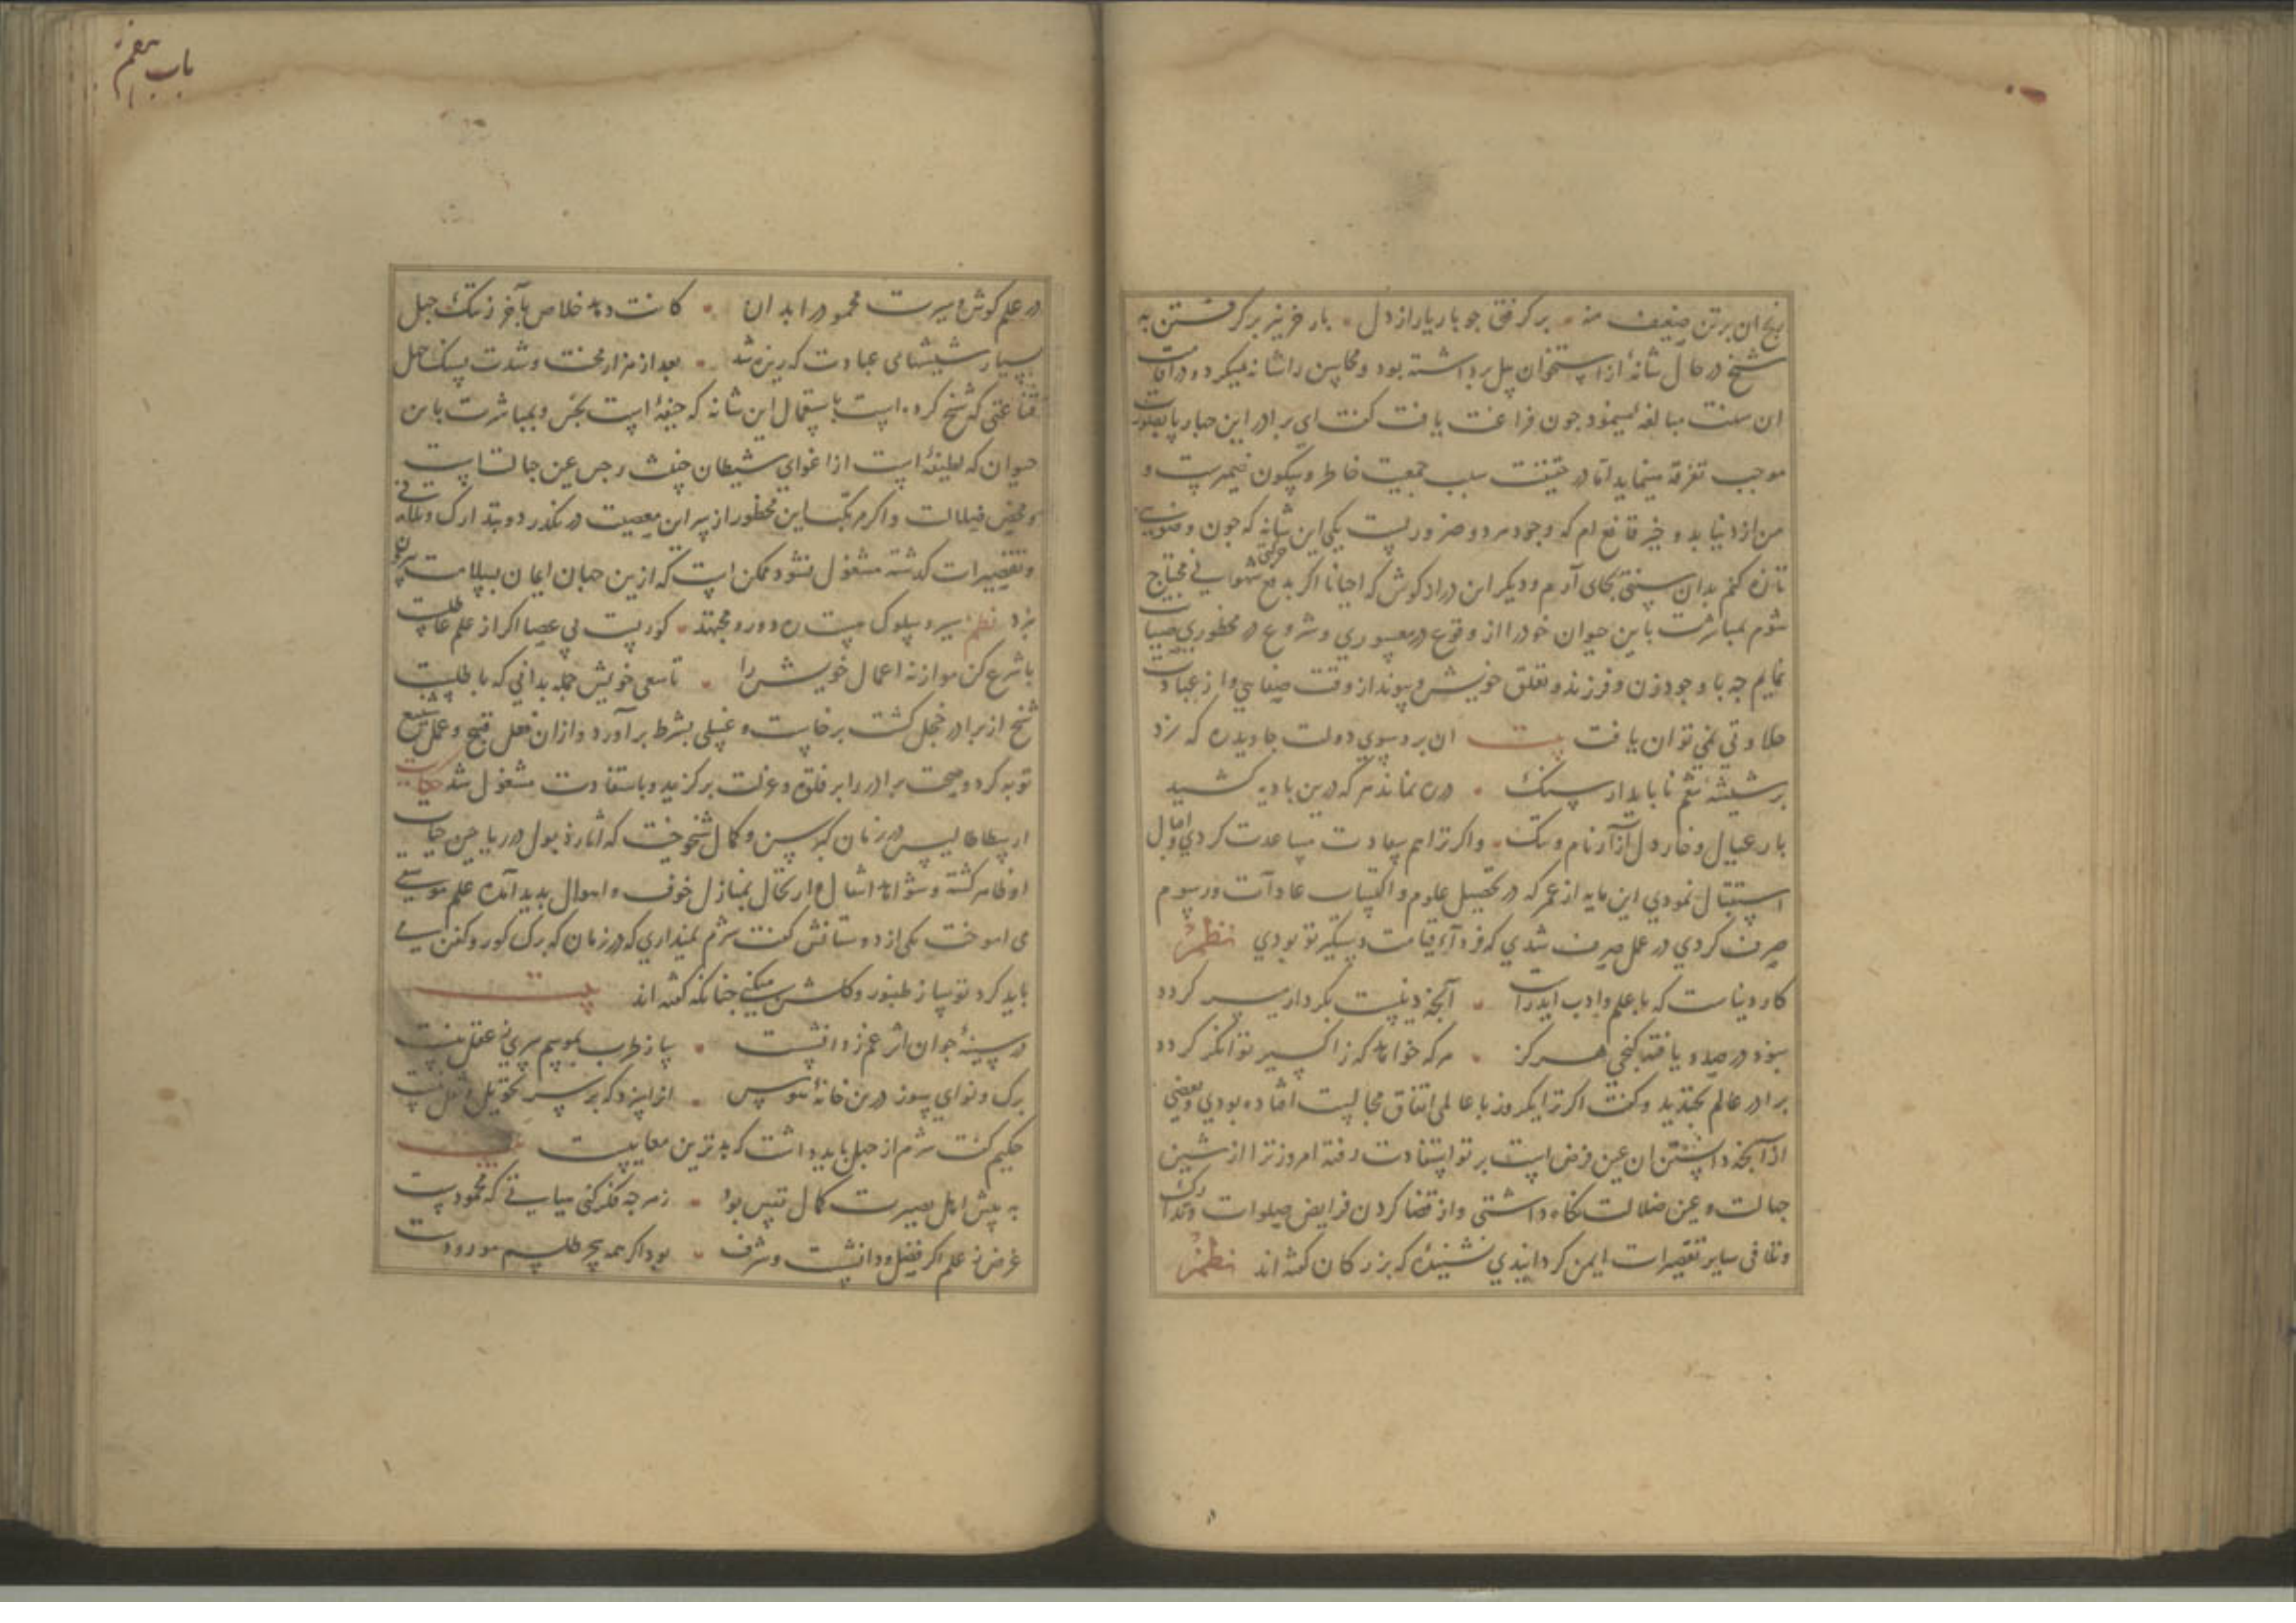 رنج ان بر تن ضعیف منه برگرفتی چو بار یار از دل بار خر نیز برگرفتن به
شیخ در حال شانهٔ از استخوان پیل برداشته بود و محاسن را شانه میکرد و در اقامت
ان سنت مبالغه می‌نمود چون فراغت یافت کفت ای برادر این
موجب تفرقه مینماید اما در حقیقت سبب جمعیت خاطر و سکون ضمیرست و
من از دنیا بدو چیز قانع ام که وجود هر دو ضروریست یکی این شانه که چون وضویی
تازه کنم بدان سنتی بجای آرم و دیکر این درازکوش که احیانا اکر بدفع حرکتی شهوانی محتاج
شوم بمباشرت باین حیوان خود را از وقوع در و شروع در محظوری صیانت
نمایم چه با وجود زن و فرزند و تعلق خویش و پیوند از وقت صفایی و از عبادت
حلاوتی نمی توان یافت بیت ان برد سوی دولت جاوید ره که زد
بر شیشهٔ تنعم ناپایدار سنک در ره نماند هر که درین بادیه کشید
بار عیال و خار دل ازار نام و ننک واکر ترا هم سعادت مساعدت کردی و اقبال
استقبال نمودی این مایه از عمر که در تحصیل علوم و اکتساب عادات و رسوم
صرف کردی در عمل صرف شدی که فردای قیامت دستکیر تو بودی نظم
کار دنیاست که با علم و ادب اید راست آنچه دینیست بکردار میسر کردد
سود در صد و یافته کنجی هرکز هر که خواهد که ز اکسیر توانکر کردد
برادر عالم بخندید و کفت اکر ترا یکروز با عالمی اتفاق مجالست افتاده بودی و بعضی
از آنچه دانستن ان عین فرض است بر تو استفادت رفته امروز ترا از شین
جهالت و عین ضلالت نکاه داشتی و از قضا کردن فرایض صلوات و تدارک
و تلافی سایر تقصیرات ایمن کردانیدی نشنیدهٔ که بزرکان کفته اند نظم
باب هفتم
در علم کوش و سیرت محمود در ابدان کانت دهد خلاص بآخر ز ننک جهل
بسیار شیشهای عبادت که ریزه شد بعد از هزار محنت و شدت بسنک جهل
قناعتی که شیخ کرده است باستعمال این شانه که جیفهٔ است نجس و بمباشرت باین
حیوان که لطیفهٔ است از اغوای شیطان خبث و رجس عین جهالت است
و محض ضلالت واکر مرتکب این محظور از سر این معصیت در نکذرد و بتدارک و تلافی
و تقصیرات کذشته مشغول نشود ممکن است که ازین جهان ایمان بسلامت بیرون
نبرد نظم سیر و سلوک پیشه ره دور و مجتهد کوریست بی عصا اکر از علم عاطلست
با شرع کن موازنه اعمال خویش را تا سعی خویش جمله بدانی که باطلست
شیخ از برادر خجل کشت برخاست و غسلی بشرط برآورد و از ان فعل قبیح و عمل شنیع
توبه کرد و صحبت برادر را بر خلوت و عزلت برکزید و باستفادت مشغول شد حکایت
ارسطاطالیس در زمان کبر سن و کمال شیخوخیت که اثار ذبول در ریاحین حیات
او ظاهر کشته و شواهد انتقال و ارتحال بمنازل خوف و اهوال پدید آمده علم موسیقی
می اموخت یکی از دوستانش کفت شرم نمیداری که در زمان که برک کور و کفن می
باید کرد تو ساز طنبور و می‌کنی چنانکه کفته اند بیت
در سینهٔ جوان اثر غم ز دانشست ساز طرب بموسم پیری نه عقل تست
برک و نوای سوز درین خانهٔ هوس
حکیم کفت شرم از جهل باید داشت که بدترین معایبست بیت
به پیش اهل بصیرت کمال نفس بود ز هر چه فکر کنی میانی که محمودست
غرض ز علم اکر فضل و دانشست و شرف بود اکر همه سحر و طلسم مورودست